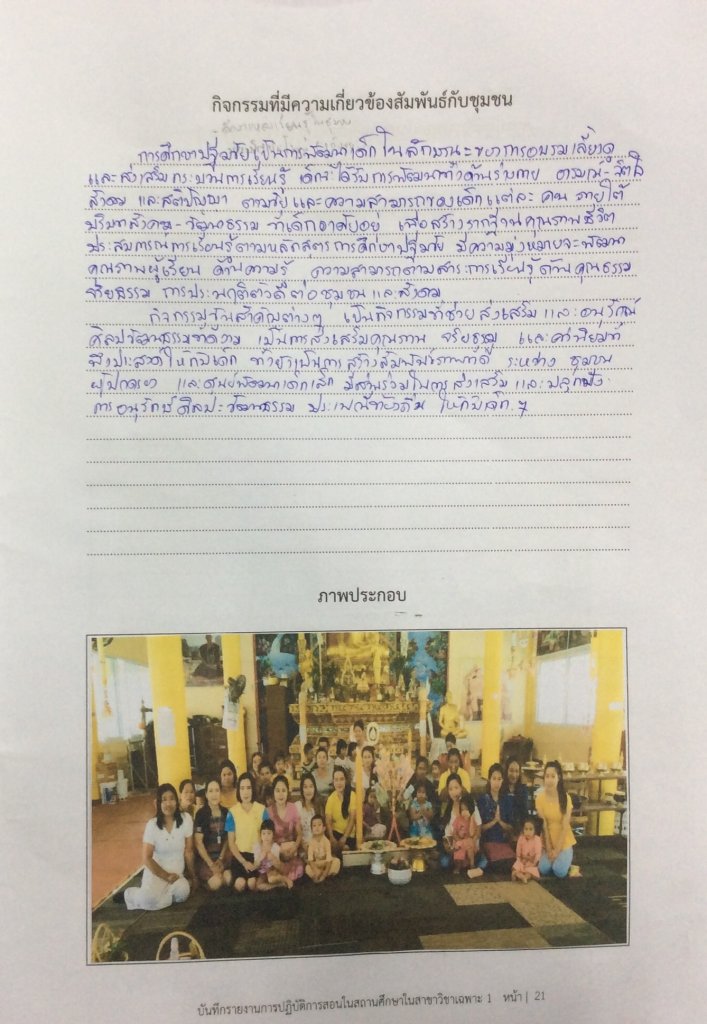 กิจกรรมที่มีความเกี่ยวข้องสัมพันธ์กับชุมชน
การศึกษาปฐมวัยเป็นการพัฒนาเด็ก ในลักษณะของการอบรมเลี้ยงดู
และส่งเสริมกระบวนการเรียนรู้ เด็กได้รับการพัฒนาทั้งด้านร่างกาย อารมณ์-จิตใจ
สังคม และสติปัญญา ตามวัย และความสามารถของเด็กแต่ละคน ภายใต้
บริบทสังคม-วัฒนธรรม ที่เด็กอาศัยอยู่ เพื่อสร้างรากฐานคุณภาพชีวิต
ประสบการณ์การเรียนรู้ตามหลักสูตรการศึกษาปฐมวัย มีความมุ่งหมายจะพัฒนา
คุณภาพผู้เรียน ด้านความรู้ ความสามารถตามสาระการเรียนรู้ ด้านคุณธรรม
จริยธรรม การประพฤติตัวดีต่อชุมชนและสังคม
กิจกรรมวันสำคัญต่างๆ เป็นกิจกรรมที่ช่วยส่งเสริม และอนุรักษ์
ศิลปวัฒนธรรมที่ดีงาม เป็นการส่งเสริมคุณธรรม จริยธรรม และค่านิยมที่
พึงประสงค์ให้กับเด็ก ทั้งยังเป็นการสร้างสัมพันธภาพที่ดี ระหว่าง ชุมชน
ผู้ปกครอง และศูนย์พัฒนาเด็กเล็ก มีส่วนร่วมในการส่งเสริม และปลูกฝัง
การอนุรักษ์ศิลปะวัฒนธรรม ประเพณีท้องถิ่น ให้กับเด็ก ๆ
ภาพประกอบ
บันทึกรายงานการปฏิบัติการสอนในสถานศึกษาในสาขาวิชาเฉพาะ 1 หน้า | 21